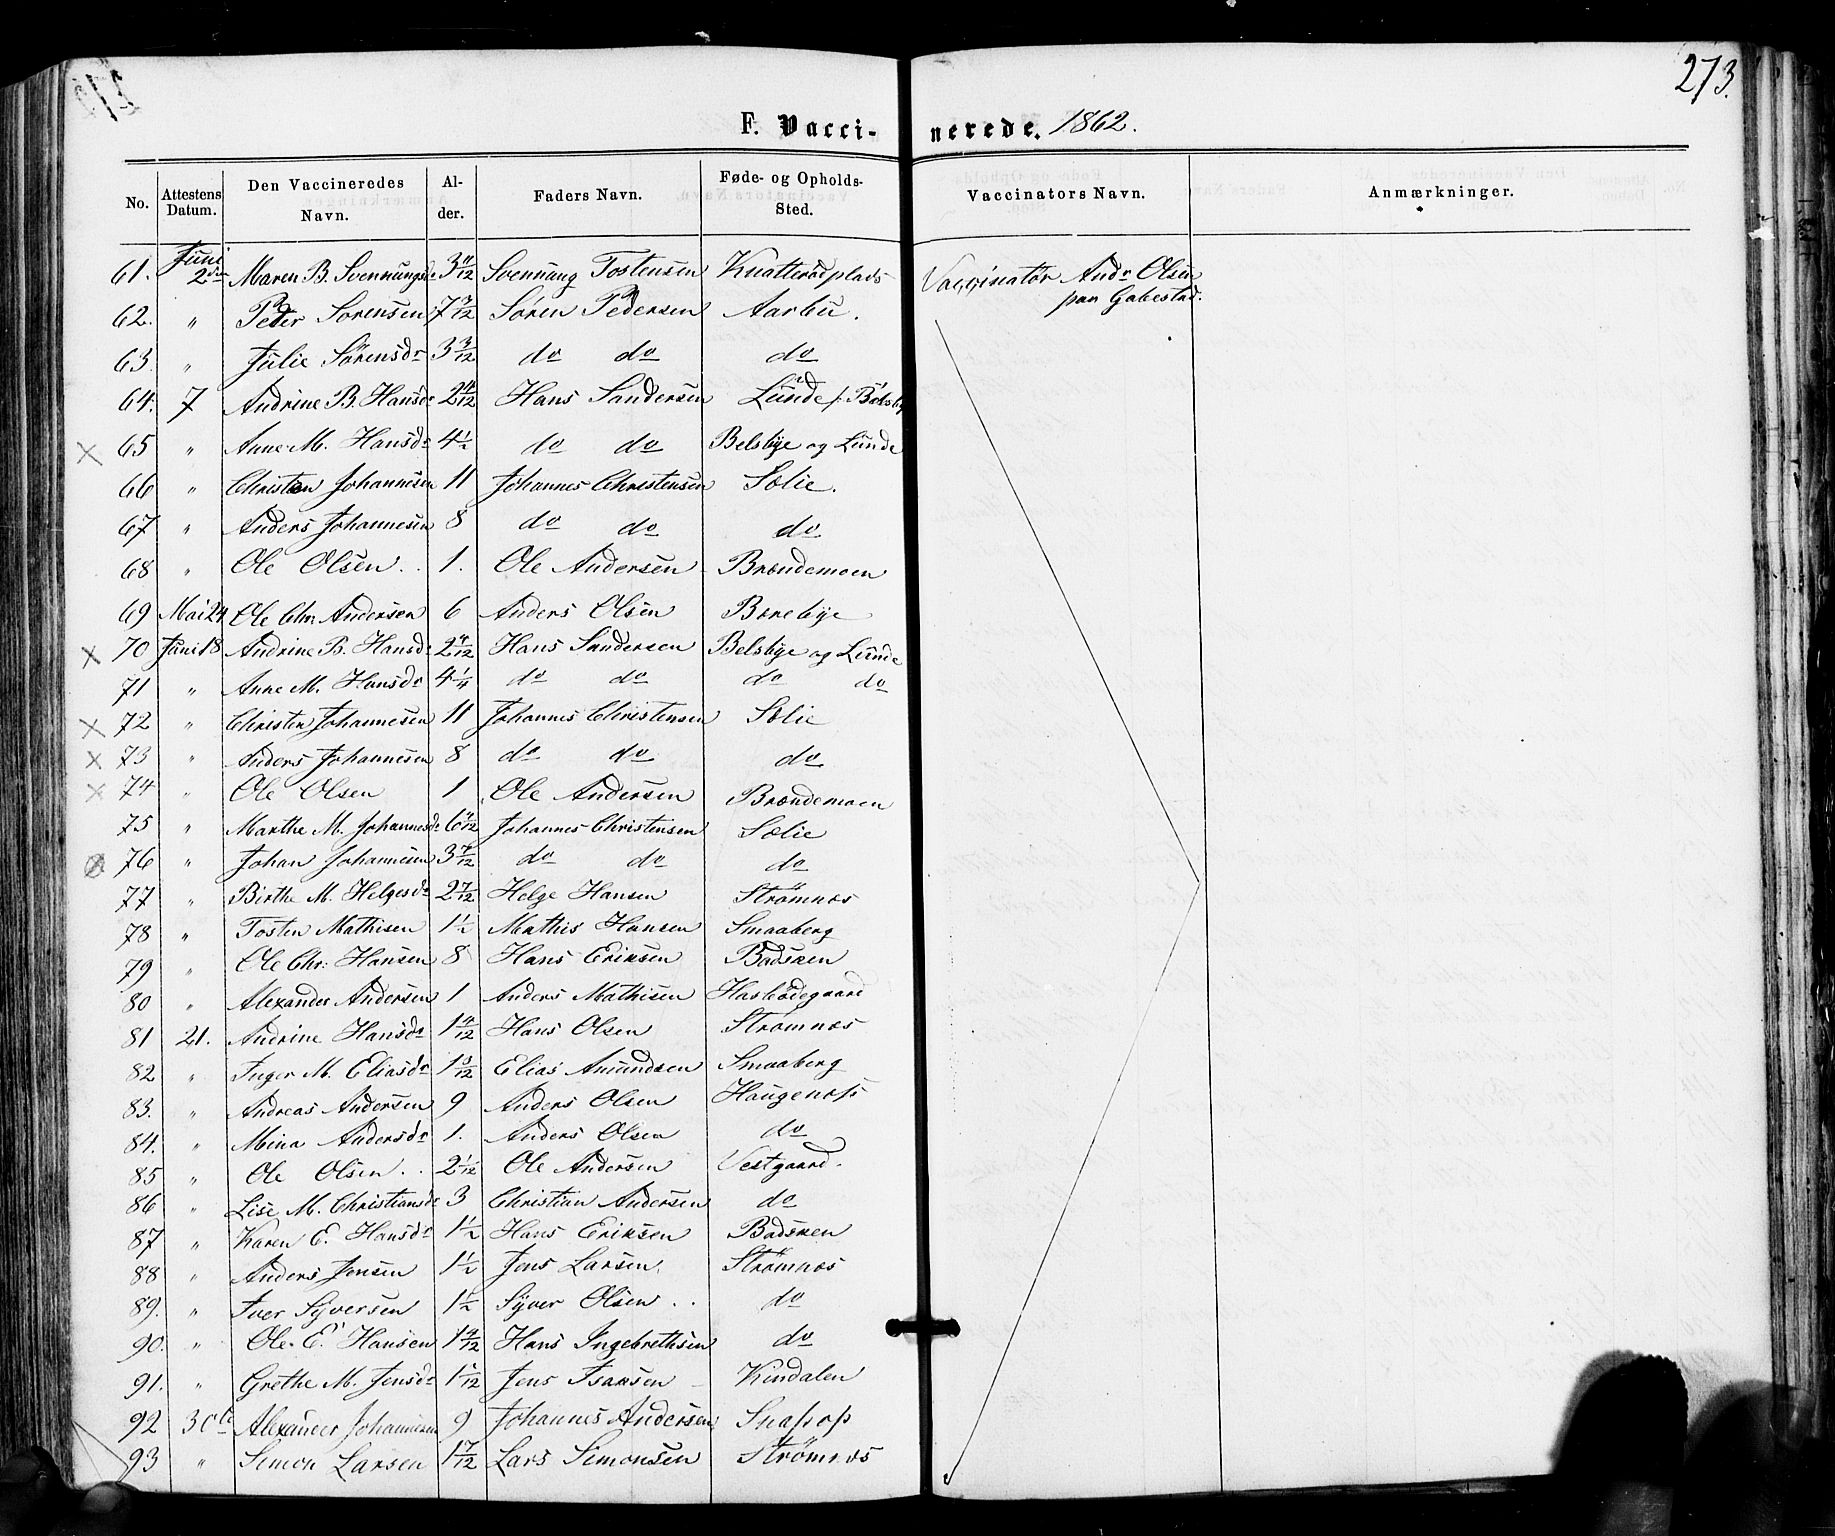 273.
F. Vaccinerede. 1862.
No. Attestens Datum. Den Vaccineredes Navn. Alder. Faders Navn. Føde- og Opholds-Sted. Vaccinators Navn. Anmærkninger.
61. Juni 2den Maren B. Svennungsdr 3 Svennung Tostensen Knatterødplads Vaccinatør Andr Olsen
paa Gabestad.
62. " Peder Sørensen 7 Søren Pedersen Aarbu.
63. " Julie Sørensdr 3 3/12 do do do
64. 7 Andrine B. Hansdr 2 4/12 Hans Sandersen Lunde
65 " Anne M. Hansdr 4 1/2 do do Belsbye og Lunde
66 " Christen Johannesen 11 Johannes Christensen Solie.
67 " Anders Johannesen 8 do do do
68 " Ole Olsen 1. Ole Andersen Brændemoen
69 Mai 24 Ole Chr. Andersen 6 Anders Olsen Borebye
70 Juni 18 Andrine B. Hansdr 2 4/12 Hans Sandersen Belsbye og Lunde
71 " Anne M. Hansdr 4 1/4 do do do do
72 " Christen Johannesen 11 Johannes Christensen Solie
73 " Anders Johannesen 8 do do do
74 " Ole Olsen 1 Ole Andersen Brændemoen
75 " Marthe M. Johannesdr 6 Johannes Christensen Solie
76 " Johan Johannesen 3 7/12 do do do
77 " Birthe M. Helgesdr 2 7/12 Helge Hansen Strømnæs
78 " Tosten Mathisen 1 1/2 Mathis Hansen Smaaberg
79 " Ole Chr: Hansen 8 Hans Eriksen Badsken
80 " Alexander Andersen 1 Anders Mathisen Hasledegaard
81 21. Andrine Hansdr 1 4/12 Hans Olsen Strømnæs
82 " Inger M. Eliasdr 1 8/12 Elias Amundsen Smaaberg
83. " Andreas Andersen 9 Anders Olsen Haugenæs
84. " Mina Andersdr 1. Anders Olsen do
85 " Ole Olsen 2 1/12 Ole Andersen Vestgaard.
86 " Lise M. Christiansdr 3 Christian Andersen do
87 " Karen E. Hansdr 1 1/2 Hans Eriksen Badsken
88 " Anders Jensen 1 1/2 Jens Larsen. Strømnæs
89. " Iver Syversen 1 1/2 Syver Olsen do
90. " Ole E. Hansen 1 Hans Ingebrethsen do
91. " Grethe M. Jensdr 1 Jens Isaksen Kindalen
92 30te Alexander Johannesen 9 Johannes Andersen
93 " Simon Larsen 1 7/12 Lars Simonsen Strømnæs